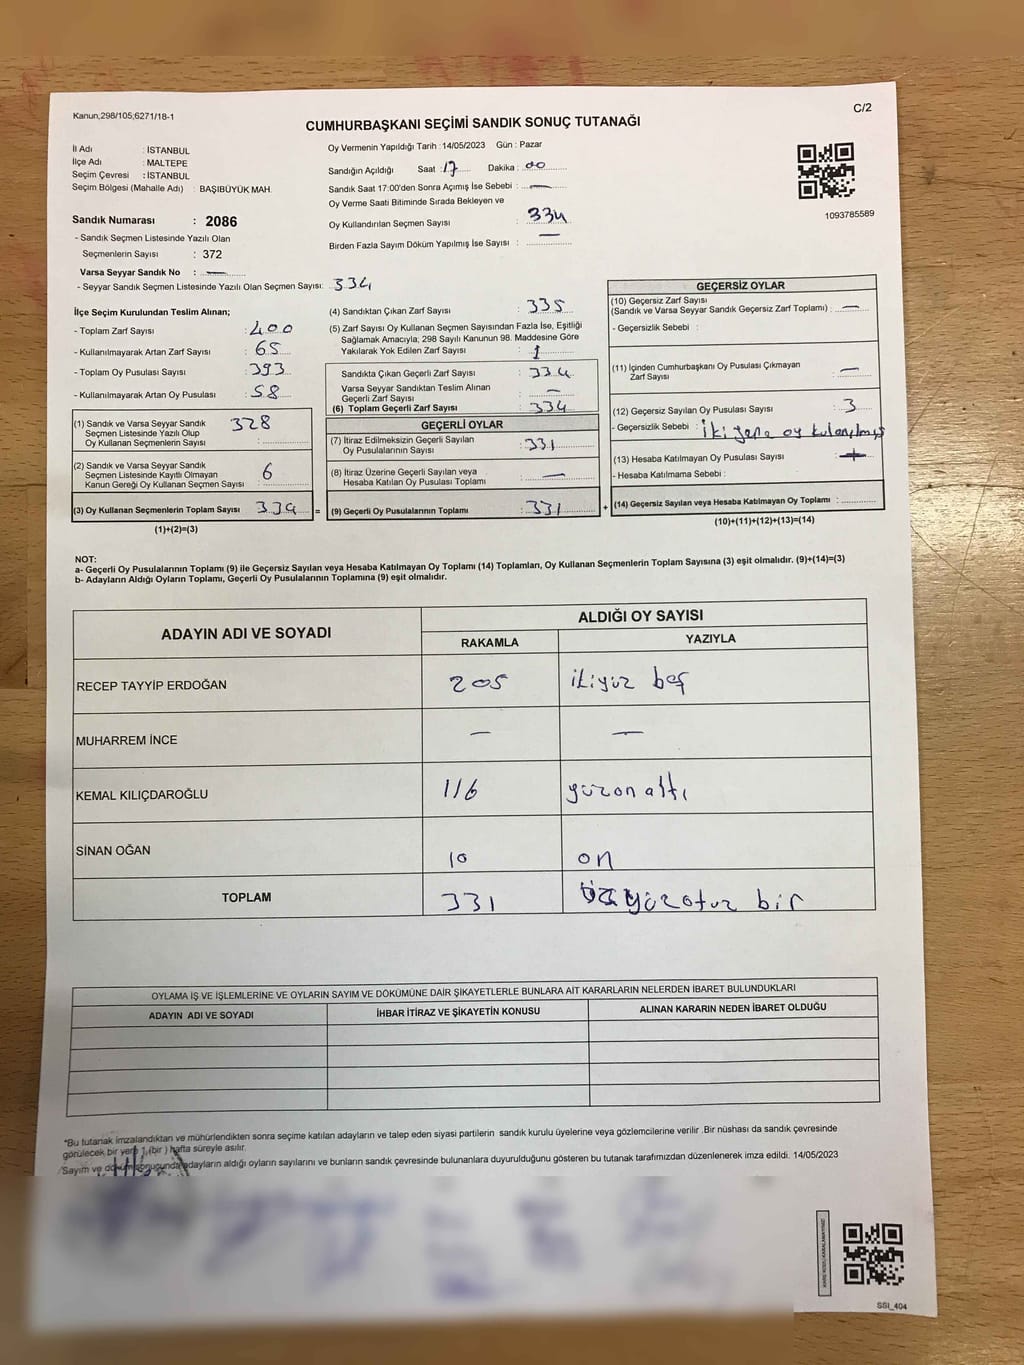 Kanun,298/105;6271/18-1
C/2
CUMHURBAŞKANI SEÇİMİ SANDIK SONUÇ TUTANAĞI
İl Adı : İSTANBUL
İlçe Adı : MALTEPE
Seçim Çevresi : İSTANBUL
Seçim Bölgesi (Mahalle Adı) : BAŞIBÜYÜK MAH.
Sandık Numarası : 2086
- Sandık Seçmen Listesinde Yazılı Olan
Seçmenlerin Sayısı : 372
Varsa Seyyar Sandık No : —
- Seyyar Sandık Seçmen Listesinde Yazılı Olan Seçmen Sayısı: 334
Oy Vermenin Yapıldığı Tarih : 14/05/2023 Gün : Pazar
Sandığın Açıldığı Saat : 17 Dakika : 00
Sandık Saat 17:00'den Sonra Açımış İse Sebebi : —
Oy Verme Saati Bitiminde Sırada Bekleyen ve
Oy Kullandırılan Seçmen Sayısı : 334
Birden Fazla Sayım Döküm Yapılmış İse Sayısı : —
1093785589
İlçe Seçim Kurulundan Teslim Alınan;
- Toplam Zarf Sayısı : 400
- Kullanılmayarak Artan Zarf Sayısı : 65
- Toplam Oy Pusulası Sayısı : 393
- Kullanılmayarak Artan Oy Pusulası : 58
(1) Sandık ve Varsa Seyyar Sandık
Seçmen Listesinde Yazılı Olup
Oy Kullanan Seçmenlerin Sayısı : 328
(2) Sandık ve Varsa Seyyar Sandık
Seçmen Listesinde Kayıtlı Olmayan
Kanun Gereği Oy Kullanan Seçmen Sayısı : 6
(3) Oy Kullanan Seçmenlerin Toplam Sayısı : 334 =
(1)+(2)=(3)
(4) Sandıktan Çıkan Zarf Sayısı : 335
(5) Zarf Sayısı Oy Kullanan Seçmen Sayısından Fazla İse, Eşitliği
Sağlamak Amacıyla; 298 Sayılı Kanunun 98. Maddesine Göre
Yakılarak Yok Edilen Zarf Sayısı : 1
Sandıkta Çıkan Geçerli Zarf Sayısı : 334
Varsa Seyyar Sandıktan Teslim Alınan
Geçerli Zarf Sayısı : —
(6) Toplam Geçerli Zarf Sayısı : 334
GEÇERLİ OYLAR
(7) İtiraz Edilmeksizin Geçerli Sayılan
Oy Pusulalarının Sayısı : 331
(8) İtiraz Üzerine Geçerli Sayılan veya
Hesaba Katılan Oy Pusulası Toplamı : —
(9) Geçerli Oy Pusulalarının Toplamı : 331 +
GEÇERSİZ OYLAR
(10) Geçersiz Zarf Sayısı
(Sandık ve Varsa Seyyar Sandık Geçersiz Zarf Toplamı) : —
- Geçersizlik Sebebi :
(11) İçinden Cumhurbaşkanı Oy Pusulası Çıkmayan
Zarf Sayısı : —
(12) Geçersiz Sayılan Oy Pusulası Sayısı : 3
- Geçersizlik Sebebi : İki yere oy kulanılmış
(13) Hesaba Katılmayan Oy Pusulası Sayısı :
- Hesaba Katılmama Sebebi :
(14) Geçersiz Sayılan veya Hesaba Katılmayan Oy Toplamı :
(10)+(11)+(12)+(13)=(14)
NOT:
a- Geçerli Oy Pusulalarının Toplamı (9) ile Geçersiz Sayılan veya Hesaba Katılmayan Oy Toplamı (14) Toplamları, Oy Kullanan Seçmenlerin Toplam Sayısına (3) eşit olmalıdır. (9)+(14)=(3)
b- Adayların Aldığı Oyların Toplamı, Geçerli Oy Pusulalarının Toplamına (9) eşit olmalıdır.
ADAYIN ADI VE SOYADI ALDIĞI OY SAYISI
RAKAMLA YAZIYLA
RECEP TAYYİP ERDOĞAN 205 ikiyüz beş
MUHARREM İNCE — —
KEMAL KILIÇDAROĞLU 116 yüzon altı
SİNAN OĞAN 10 on
TOPLAM 331 üçyüzotuz bir
OYLAMA İŞ VE İŞLEMLERİNE VE OYLARIN SAYIM VE DÖKÜMÜNE DAİR ŞİKAYETLERLE BUNLARA AİT KARARLARIN NELERDEN İBARET BULUNDUKLARI
ADAYIN ADI VE SOYADI İHBAR İTİRAZ VE ŞİKAYETİN KONUSU ALINAN KARARIN NEDEN İBARET OLDUĞU
*Bu tutanak imzalandıktan ve mühürlendikten sonra seçime katılan adayların ve talep eden siyasi partilerin sandık kurulu üyelerine veya gözlemcilerine verilir .Bir nüshası da sandık çevresinde
görülecek bir yere 1 (bir ) hafta süreyle asılır.
Sayım ve döküm sonucunda adayların aldığı oyların sayılarını ve bunların sandık çevresinde bulunanlara duyurulduğunu gösteren bu tutanak tarafımızdan düzenlenerek imza edildi. 14/05/2023
SSI_404